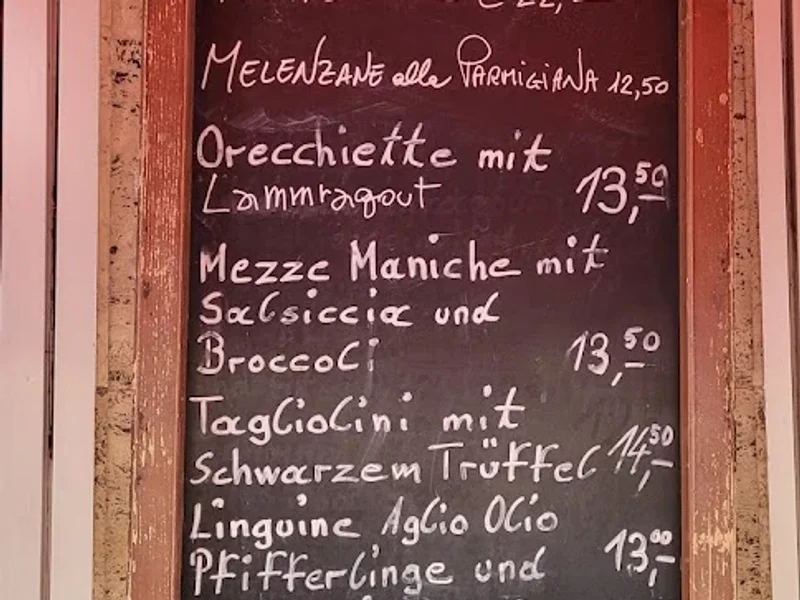 MELENZANE alla PARMIGIANA 12,50
Orecchiette mit
Lammragout 13,50
Mezze Maniche mit
Salsiccia und
Broccoli 13,50
Tagliolini mit
Schwarzem Trüffel 14,50
Linguine Aglio Olio
Pfifferlinge und 13,00